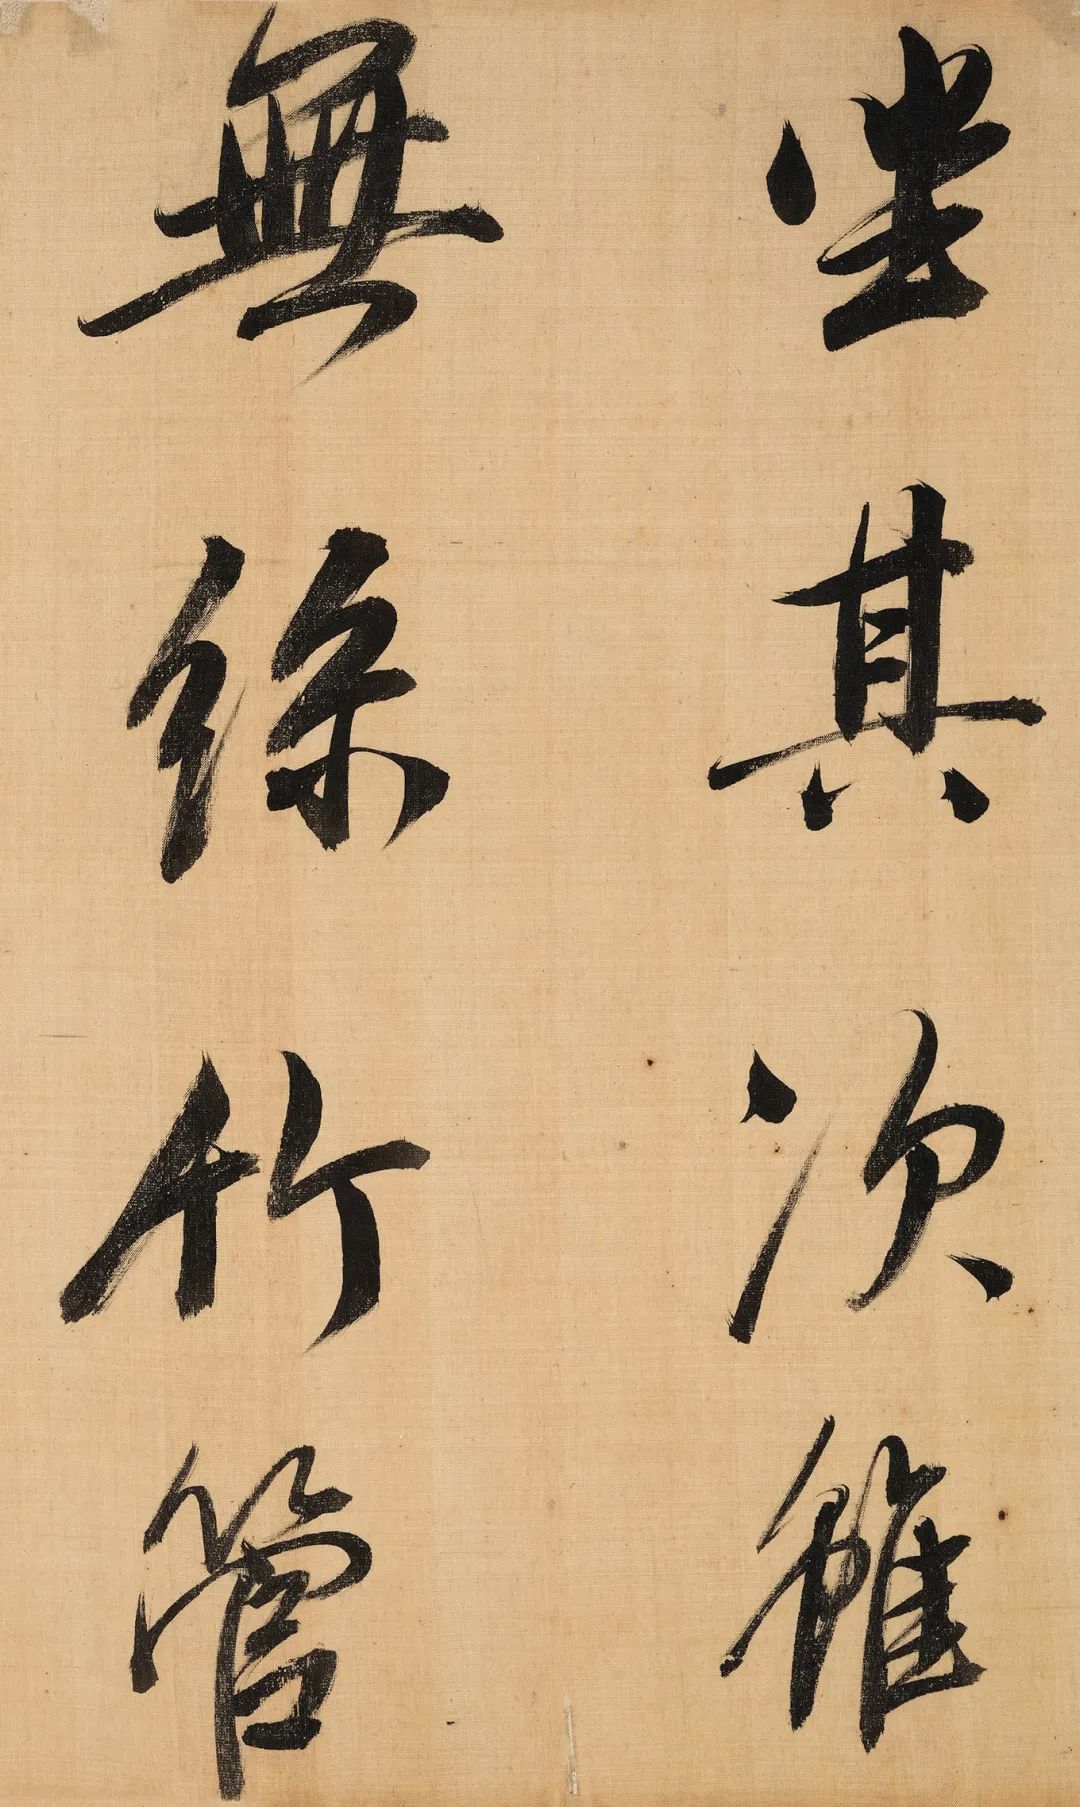 坐其次雖
無絲竹管